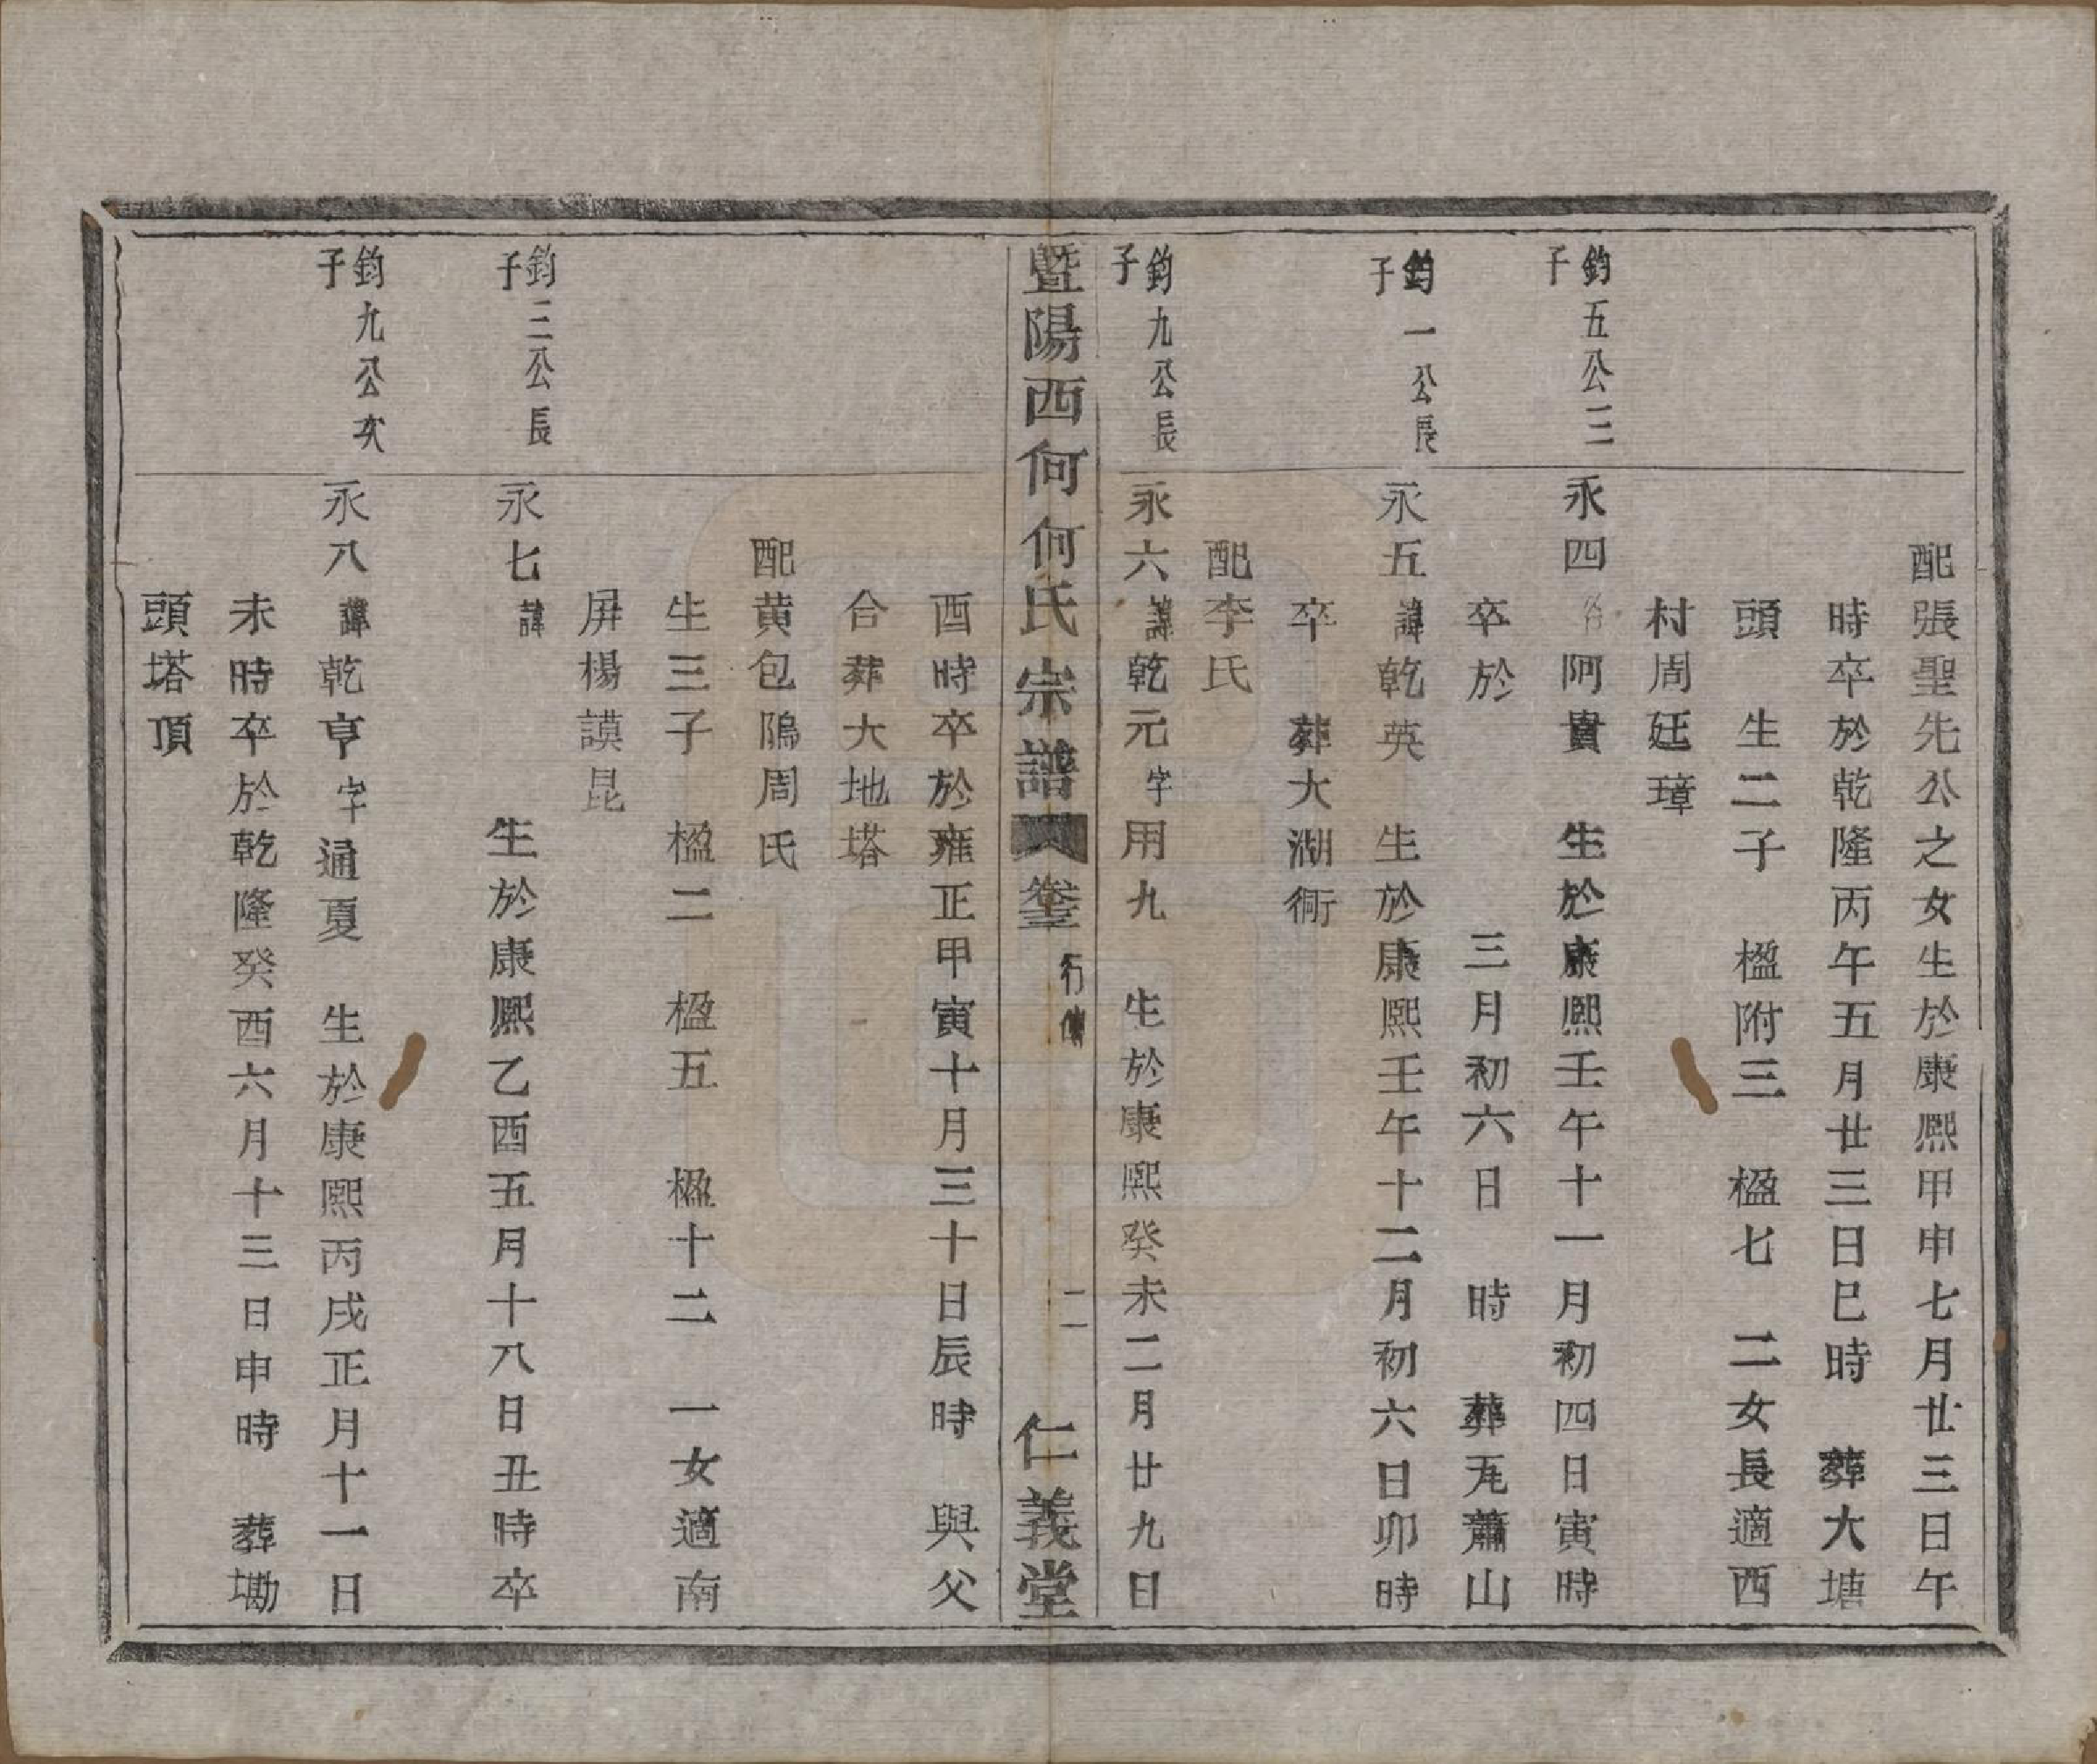 配張聖先公之女生於康熙甲申七月廿三日午
時卒於乾隆丙午五月廿三日巳時　葬大塘
頭　生二子　楹附三　楹七　二女長適西
村周廷璋
鈞五公三子　永四　阿貴　生於康熙壬午十一月初四日寅時
卒於　三月初六日　時　葬瓦蕭山
鈞一公長子　永五諱乾英　生於康熙壬午十二月初六日卯時
卒　葬大湖衕
配李氏
鈞九公長子　永六諱乾元字用九　生於康熙癸未二月廿九日
暨陽西何何氏宗譜　卷三　行傳　二　仁義堂
酉時卒於雍正甲寅十月三十日辰時　與父
合葬大地塔
配黄包隖周氏
生三子　楹二　楹五　楹十二　一女適南
屏楊謨昆
鈞三公長子　永七諱　生於康熙乙酉五月十八日丑時卒
鈞九公次子　永八諱乾亨字通夏　生於康熙丙戌正月十一日
未時卒於乾隆癸酉六月十三日申時　葬墈
頭塔頂